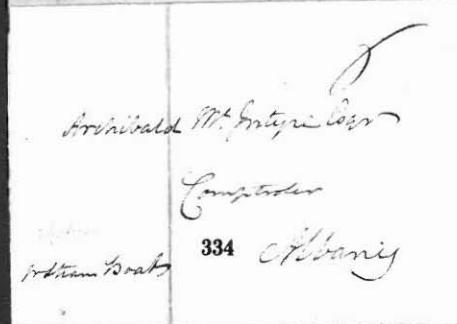 Archibald Mc Intyre Esqr
Comptroller
334 Albany
Steam Boat